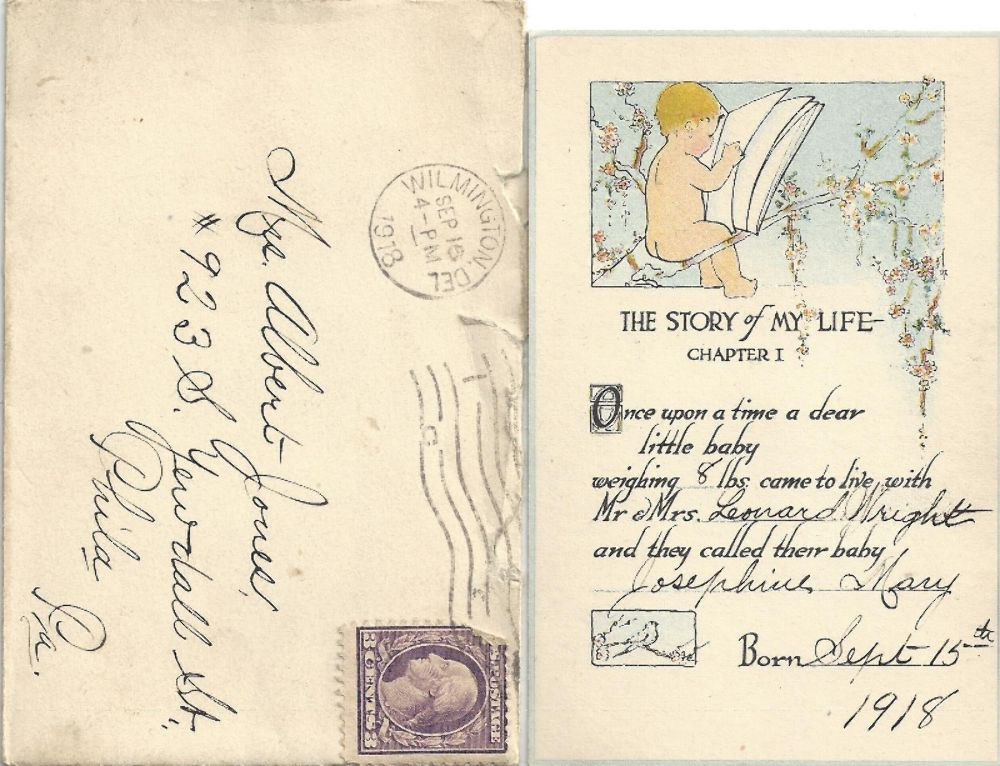 Mrs. Albert Jones,
# 923 S. Yewdall St.
Phila
Pa.
WILMINGTON, DEL
SEP 16
4-PM
1918
U.S. POSTAGE
3 CENTS 3
THE STORY of MY LIFE-
CHAPTER I
Once upon a time a dear
little baby
weighing 8 lbs. came to live with
Mr & Mrs. Leonard Wright
and they called their baby
Josephine Mary
Born Sept 15th
1918